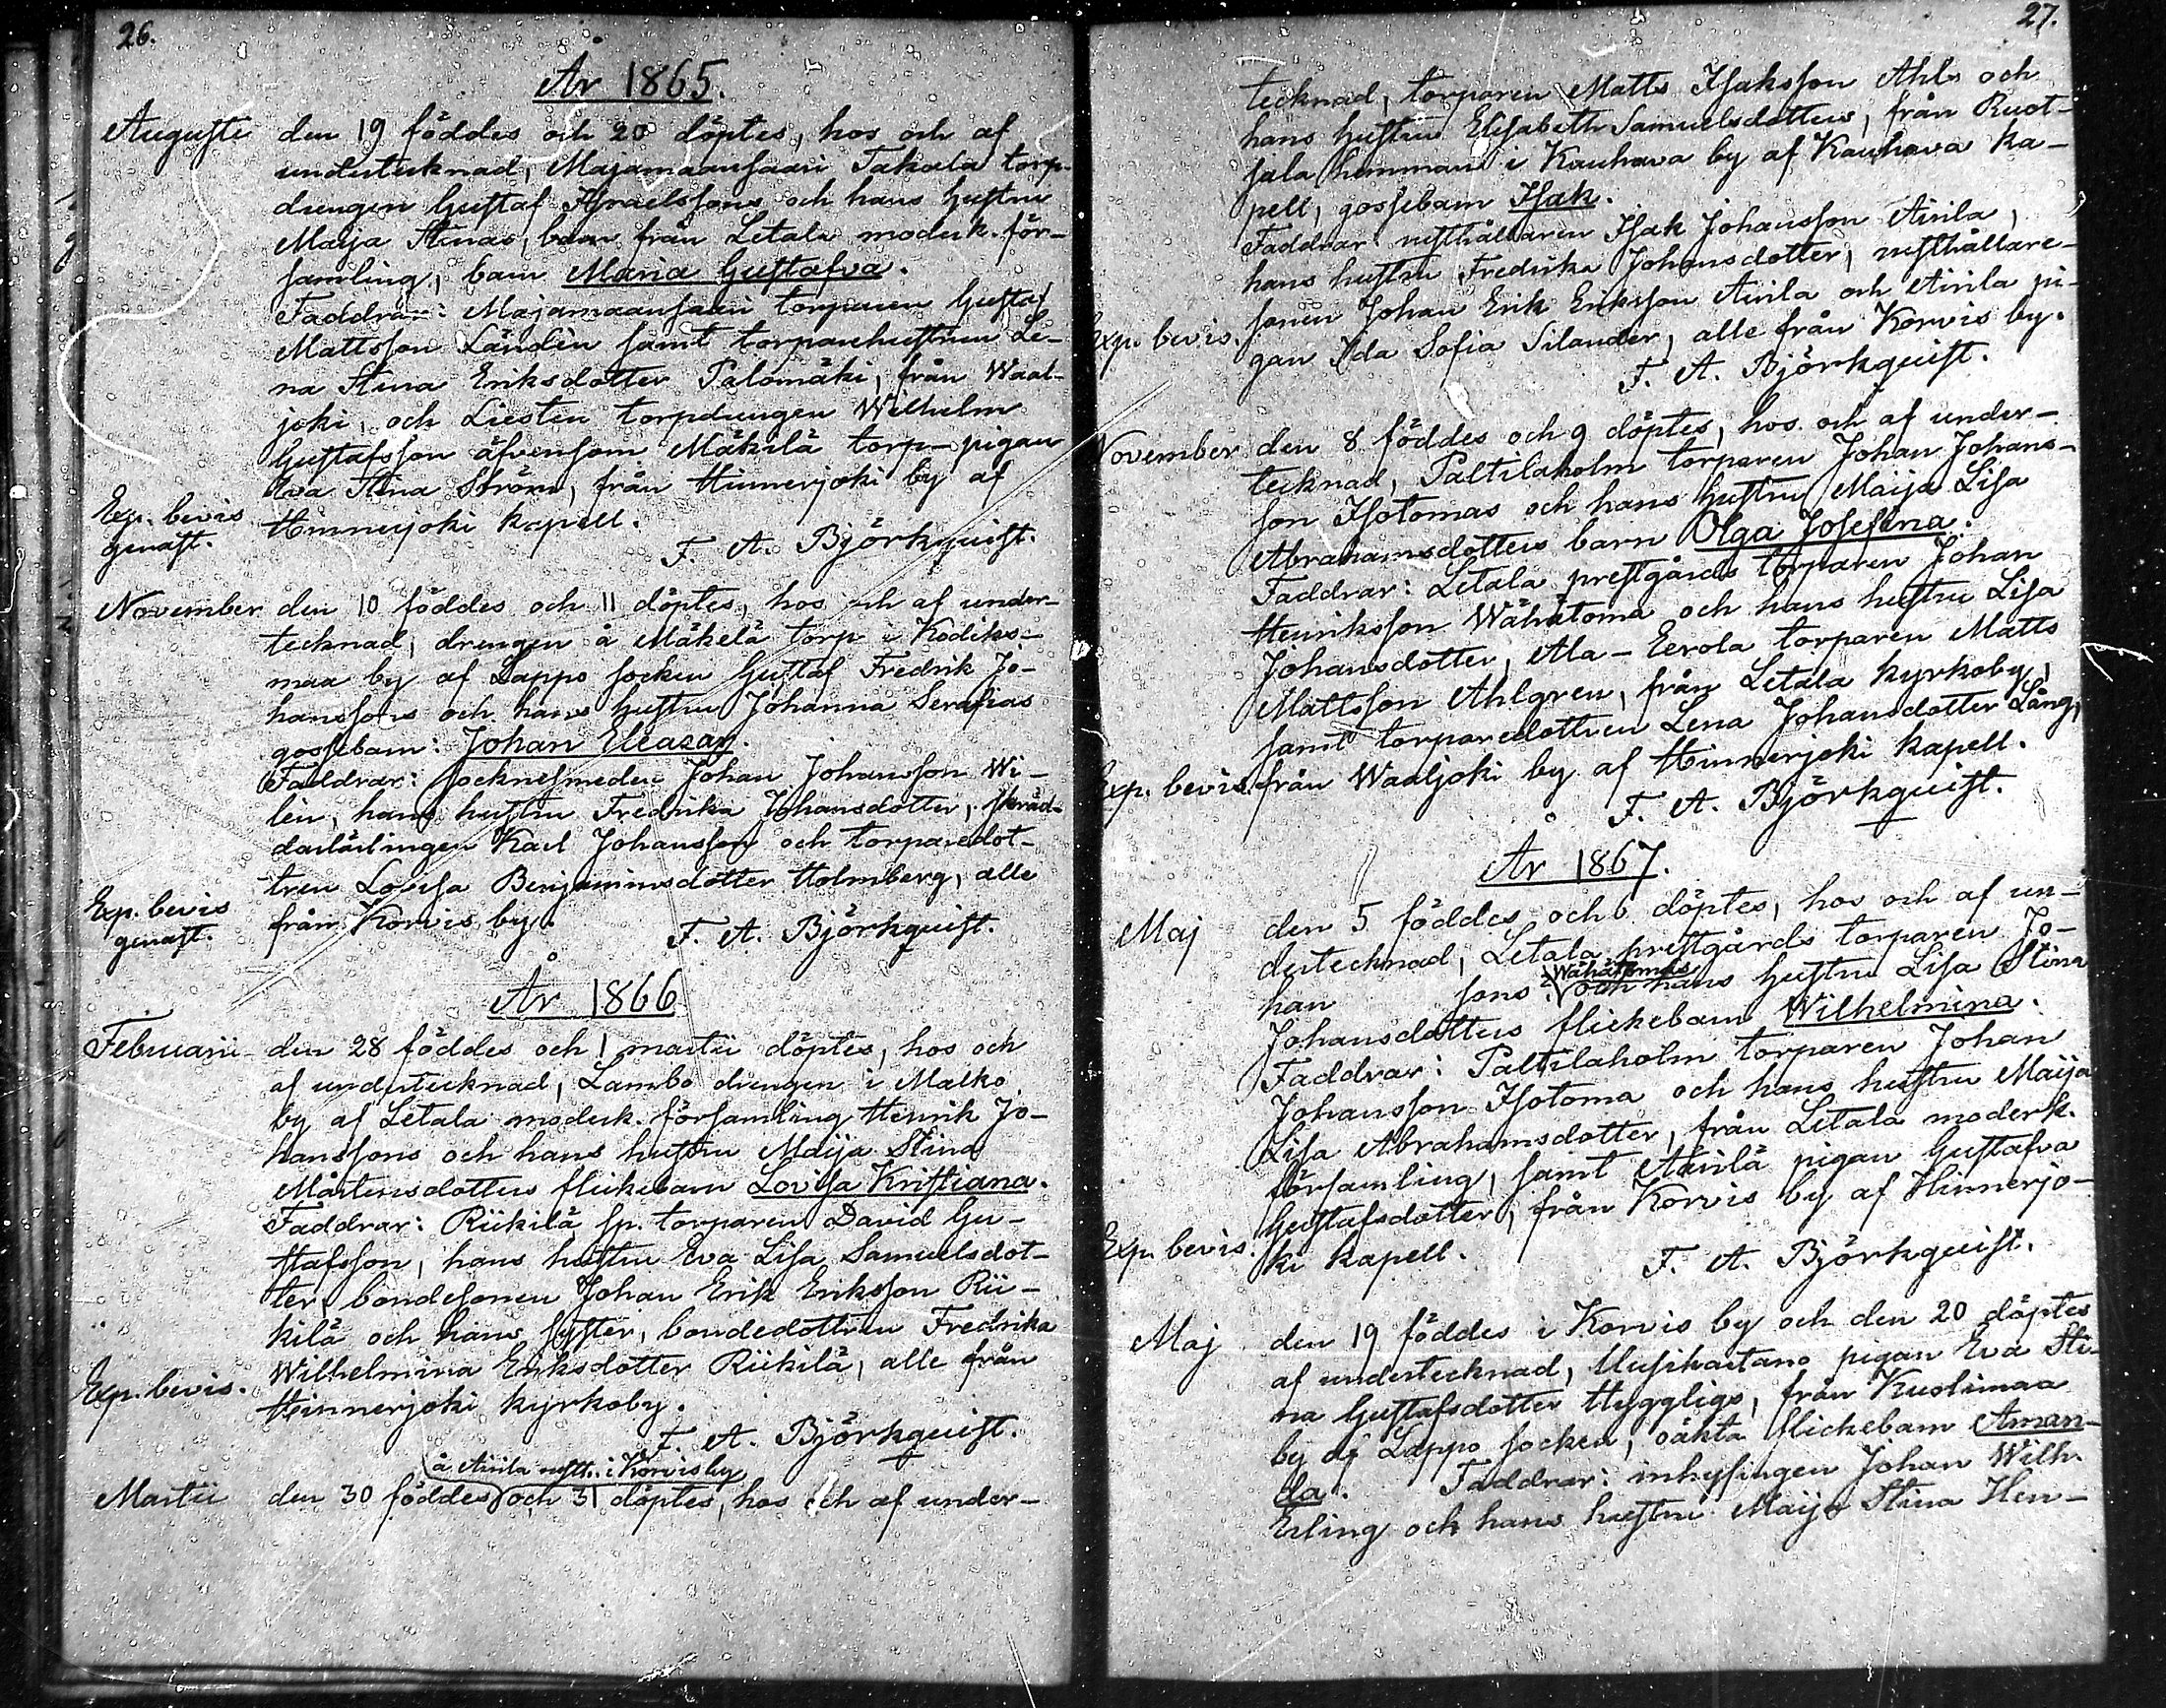 26.
År 1865.
Augusti den 19 föddes och 20 döptes, hos och af
undertecknad, Majamaansaari Takala torp-
drengen Gustaf Israelssons och hans hustru
Maija Stinas, barn från Letala moderk. för-
samling, barn Maria Gustafva.
Faddrar: Majamaansaari torparen Gustaf
MattssonLändén samt torparehustrun Le-
na Stina Eriksdotter Palomäki, från Waal-
joki, och Liesten torpdrengen Wilhelm
Gustafsson äfvensom Mäkilä torp-pigan
Eva Stina Ström, från Hinnerjoki by af
Exp. bevis Hinnerjoki kapell.
genast. F. A. Björkquist.
November den 10 föddes och 11 döptes, hos och af under-
tecknad, drengen å Mäkelä torp i Kodiks-
maa by af Lappo socken Gustaf Fredrik Jo-
hanssons och hans hustru Johanna Serafias
gossebarn: Johan Eleazar.
Faddrar: socknesmeden Johan Johansson Wi-
lén, hans hustru Fredrika Johansdotter, skräd-
darlärlingen Karl Johansson och torparedot-
tren Lovisa Benjaminsdotter Holmberg, alle
Exp. bevis från Korvis by.
genast. F. A. Björkquist.
År 1866
Februarii den 28 föddes och 1 martii döptes, hos och
af undertecknad, Lambo drengen i Malko
by af Letala moderk. församling Henrik Jo-
hanssons och hans hustru Maija Stina
Mårtensdotters flickebarn Lovisa Kristiana.
Faddrar: Riikilä sp. torparen David Gu-
stafsson, hans hustru Eva Lisa Samuelsdot-
ter, bondesonen Johan Erik Eriksson Rii-
kilä och hans syster, bondedottren Fredrika
Wilhelmina Eriksdotter Riikilä, alle från
Exp. bevis. Hinnerjoki kyrkoby.
F. A. Björkquist.
å Airila rusth. i Korvis by
Martii den 30 föddes och 31 döptes, hos och af under-
27.
tecknad, torparen Matts Isaksson Ahls och
hans hustru Elisabeth Samuelsdotters, från Ruot-
sala hemman i Kauhava by af Kauhava ka-
pell, gossebarn Isak.
Faddrar: rusthållaren Isak Johansson Airila,
hans hustru Fredrika Johansdotter, rusthållare-
sonen Johan Erik Eriksson Airila och Airila pi-
Exp. bevis. gan Ida Sofia Silander, alle från Korvis by.
F. A. Björkquist.
November den 8 föddes och 9 döptes, hos och af under-
tecknad, Paltilaholm torparen Johan Johans-
son Isotomas och hans hustru Maija Lisa
Abrahamsdotters barn Olga Josefina.
Faddrar: Letala prestgårds torparen Johan
Henriksson Wähätoma och hans hustru Lisa
Johansdotter, Ala-Eerola torparen Matts
Mattsson Ahlgren, från Letala kyrkoby,
samt torparedottren Lena Johansdotter Lång,
Exp. bevis. från Waaljoki by af Hinnerjoki kapell.
F. A. Björkquist.
År 1867.
Maj den 5 föddes och 6 döptes, hos och af un-
dertecknad, Letala prestgårds torparen Jo-
Wähätomas
han sons och hans hustru Lisa Stina
Johansdotters flickebarn Wilhelmina.
Faddrar: Paltilaholm torparen Johan
Johansson Isotoma och hans hustru Maija
Lisa Abrahamsdotter, från Letala moderk.
församling, samt Airilä pigan Gustafva
Gustafsdotter, från Korvis by af Hinnerjo-
Exp. bevis. ki kapell.
F. A. Björkquist.
Maj den 19 föddes i Korvis by och den 20 döptes
af undertecknad, Uusikartano pigan Eva Sti-
na Gustafsdotter Hyggligs, från Kuolimaa
by af Lappo socken, oäkta flickebarn Aman-
da. Faddrar: inhysingen Johan Wilh.
Erling och hans hustru Maija Stina Hen-